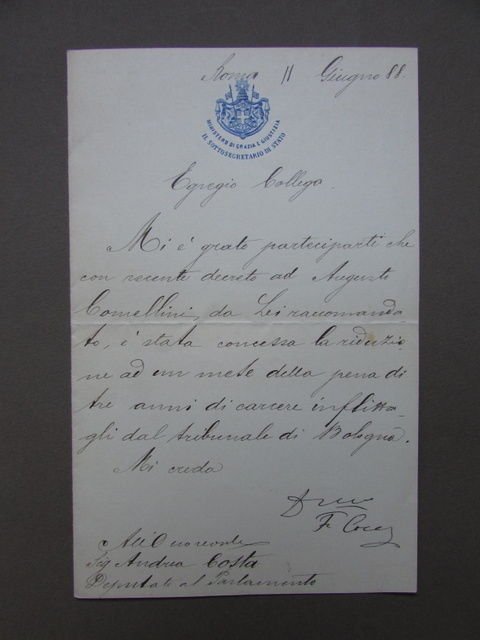 Roma 11 Giugno 88.
MINISTERO DI GRAZIA E GIUSTIZIA
IL SOTTOSEGRETARIO DI STATO
Egregio Collega.
Mi è grato parteciparti che
con recente decreto ad Augusto
Comellini, da Lei raccomanda
to, è stata concessa la riduzio
ne ad un mese della pena di
tre anni di carcere inflitta
gli dal tribunale di Bologna.
Mi creda
F. Cocco
All'Onorevole
Sig Andrea Costa
Deputato al Parlamento